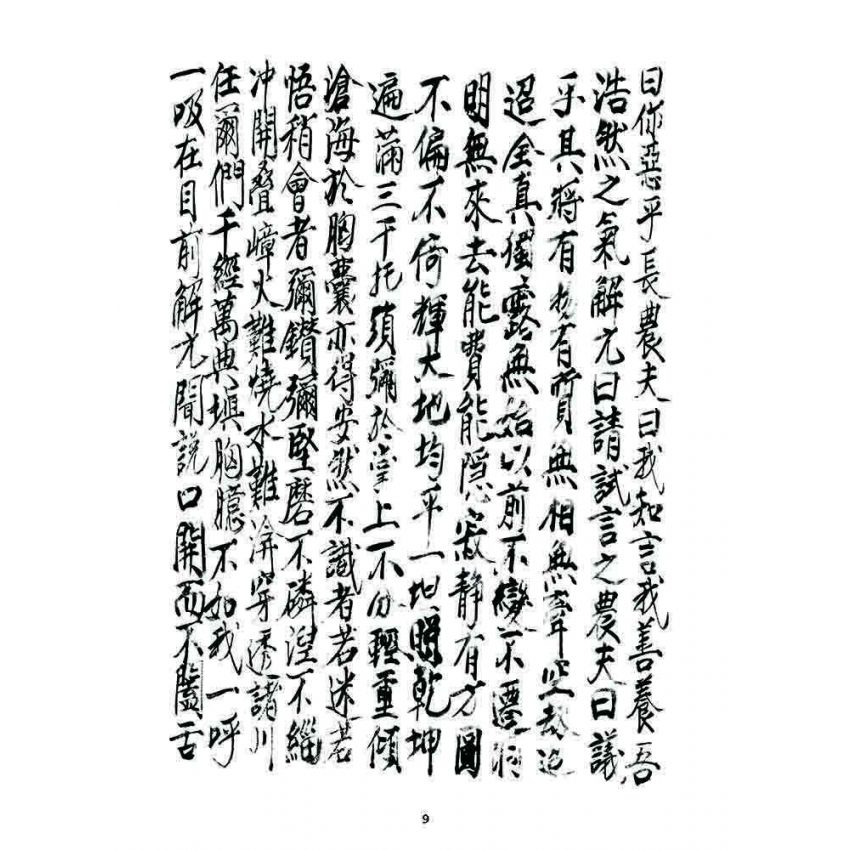 曰你惡乎長農夫曰我知言我善養吾
浩然之氣解尤曰請試言之農夫曰議
乎其將有物有質無相無聲空劫迢
迢全真獨露無始以前不變不遷洞
明無來去能費能隱寂静有方圓
不偏不倚輝大地均平一坦朗乾坤
遍滿三千托須彌於掌上不分輕重傾
滄海於胸囊亦得安然不識者若迷若
悟稍會者彌鑽彌堅磨不磷湼不緇
冲開叠嶂火難燒水難渰穿透諸川
任爾們千經萬典填胸臆不如我一呼
一吸在目前解尤聞説口開而不闔舌
9